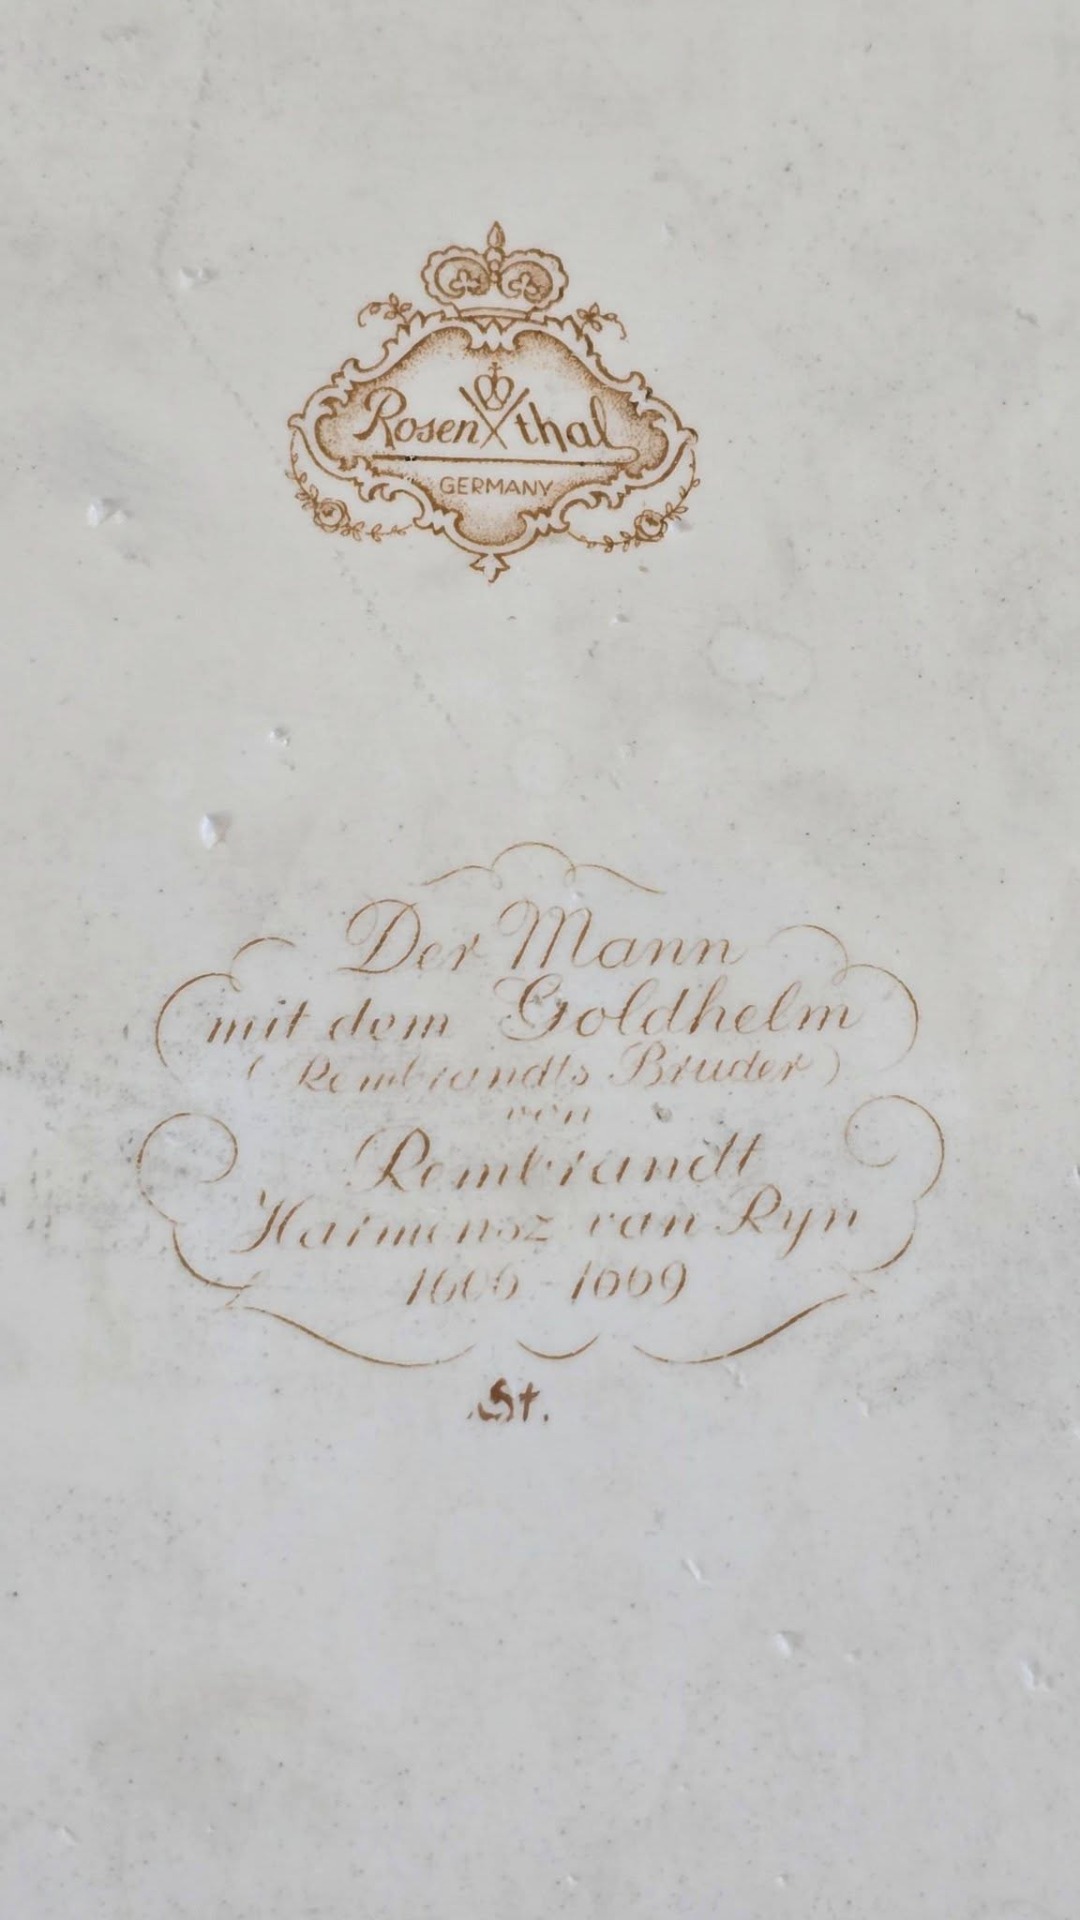 Rosenthal
GERMANY
Der Mann
mit dem Goldhelm
(Rembrandts Bruder)
von
Rembrandt
Harmensz van Ryn
1606-1669
St.